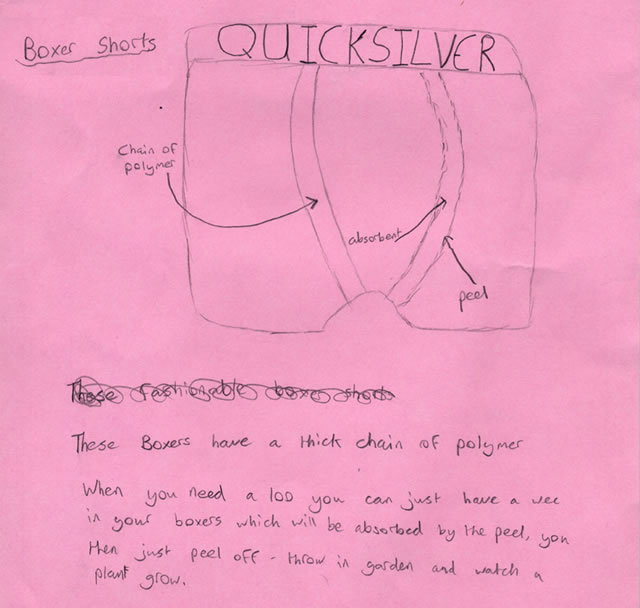 Boxer Shorts
QUICKSILVER
Chain of
polymer
absorbent
peel
These fashionable boxer shorts
These Boxers have a thick chain of polymer
When you need a loo you can just have a wee
in your boxers which will be absorbed by the peel, you
then just peel off - throw in garden and watch a
plant grow.